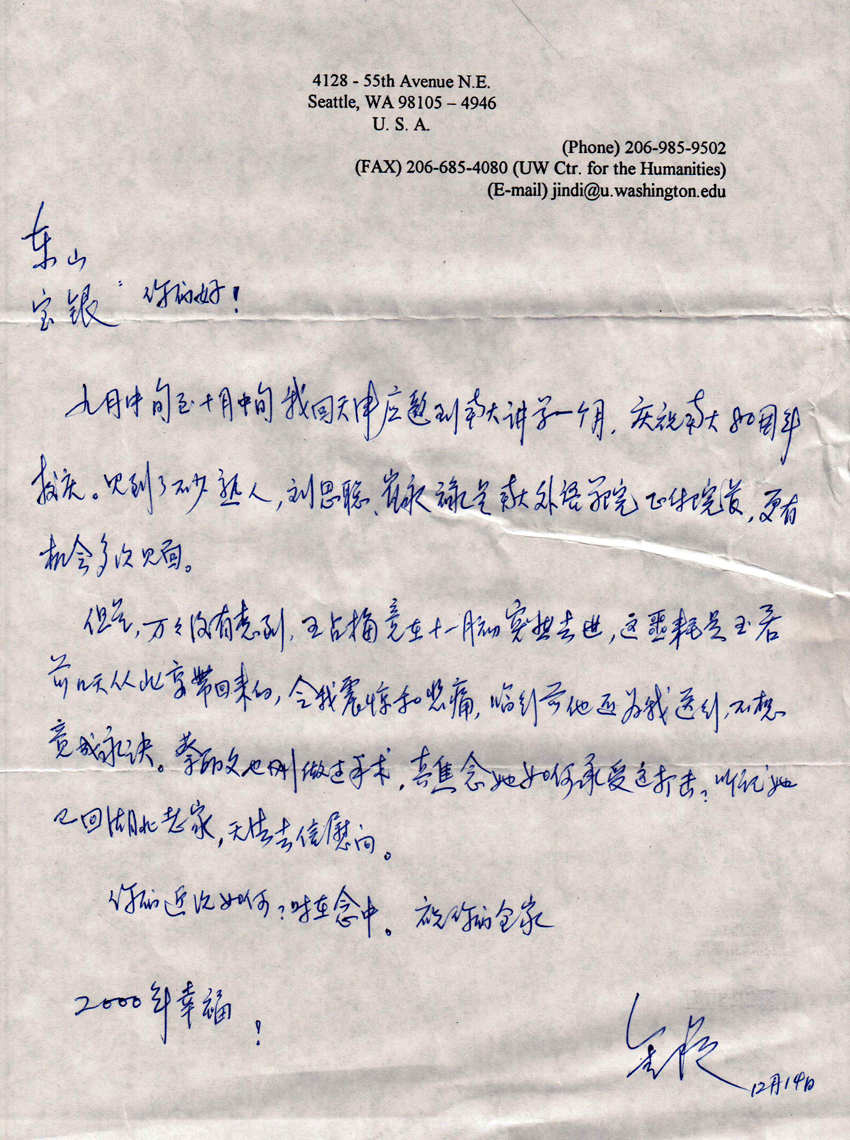 4128 - 55th Avenue N.E.
Seattle, WA 98105 – 4946
U. S. A.
(Phone) 206-985-9502
(FAX) 206-685-4080 (UW Ctr. for the Humanities)
(E-mail) jindi@u.washington.edu
东山
宝银：你们好！
九月中旬至十月中旬我回天津应邀到南大讲学一个月，庆祝南大80周年
校庆。见到了不少熟人，刘思聪、崔永禄是南大外语学院正付院长，更有
机会多次见面。
但是，万々没有想到，王占梅竟在十一月初突然去世，这噩耗是玉若
前几天从北京带回来的，令我震惊和悲痛，临行前他还为我送行，不想
竟成永诀。蔡丽文也刚做过手术，真焦念她如何承受这打击？听说她
已回湖北老家，无法去信慰问。
你们近况如何？时在念中。祝你们全家
2000年幸福！
金隄
12月14日